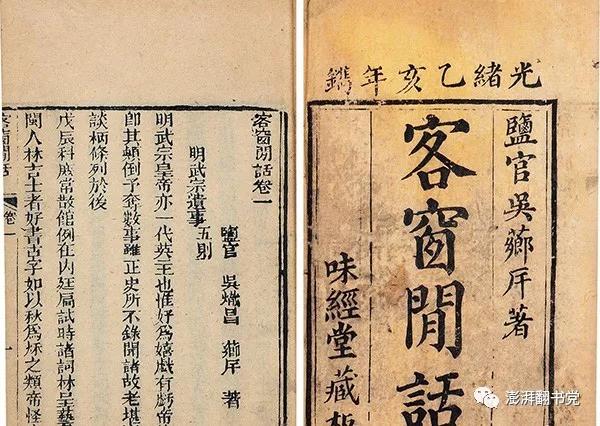 光緒乙亥年鐫
鹽官吳薌厈著
客窗閒話
味經堂藏板
客窗閒話卷一
鹽官 吳熾昌 薌厈 著
明武宗遺事五則
明武宗皇帝亦一代英主也惟好為嬉戲有戲帝
即其顛倒予奪數事雖正史所不錄聞諸故老堪
談柄條列於後
戊辰科庶常散館例在内廷扃試時諸詞林呈藝
閩人林吉士者好書古字如以秋為秌之類帝怪
客窗閒話 卷一 一
澎湃翻书党